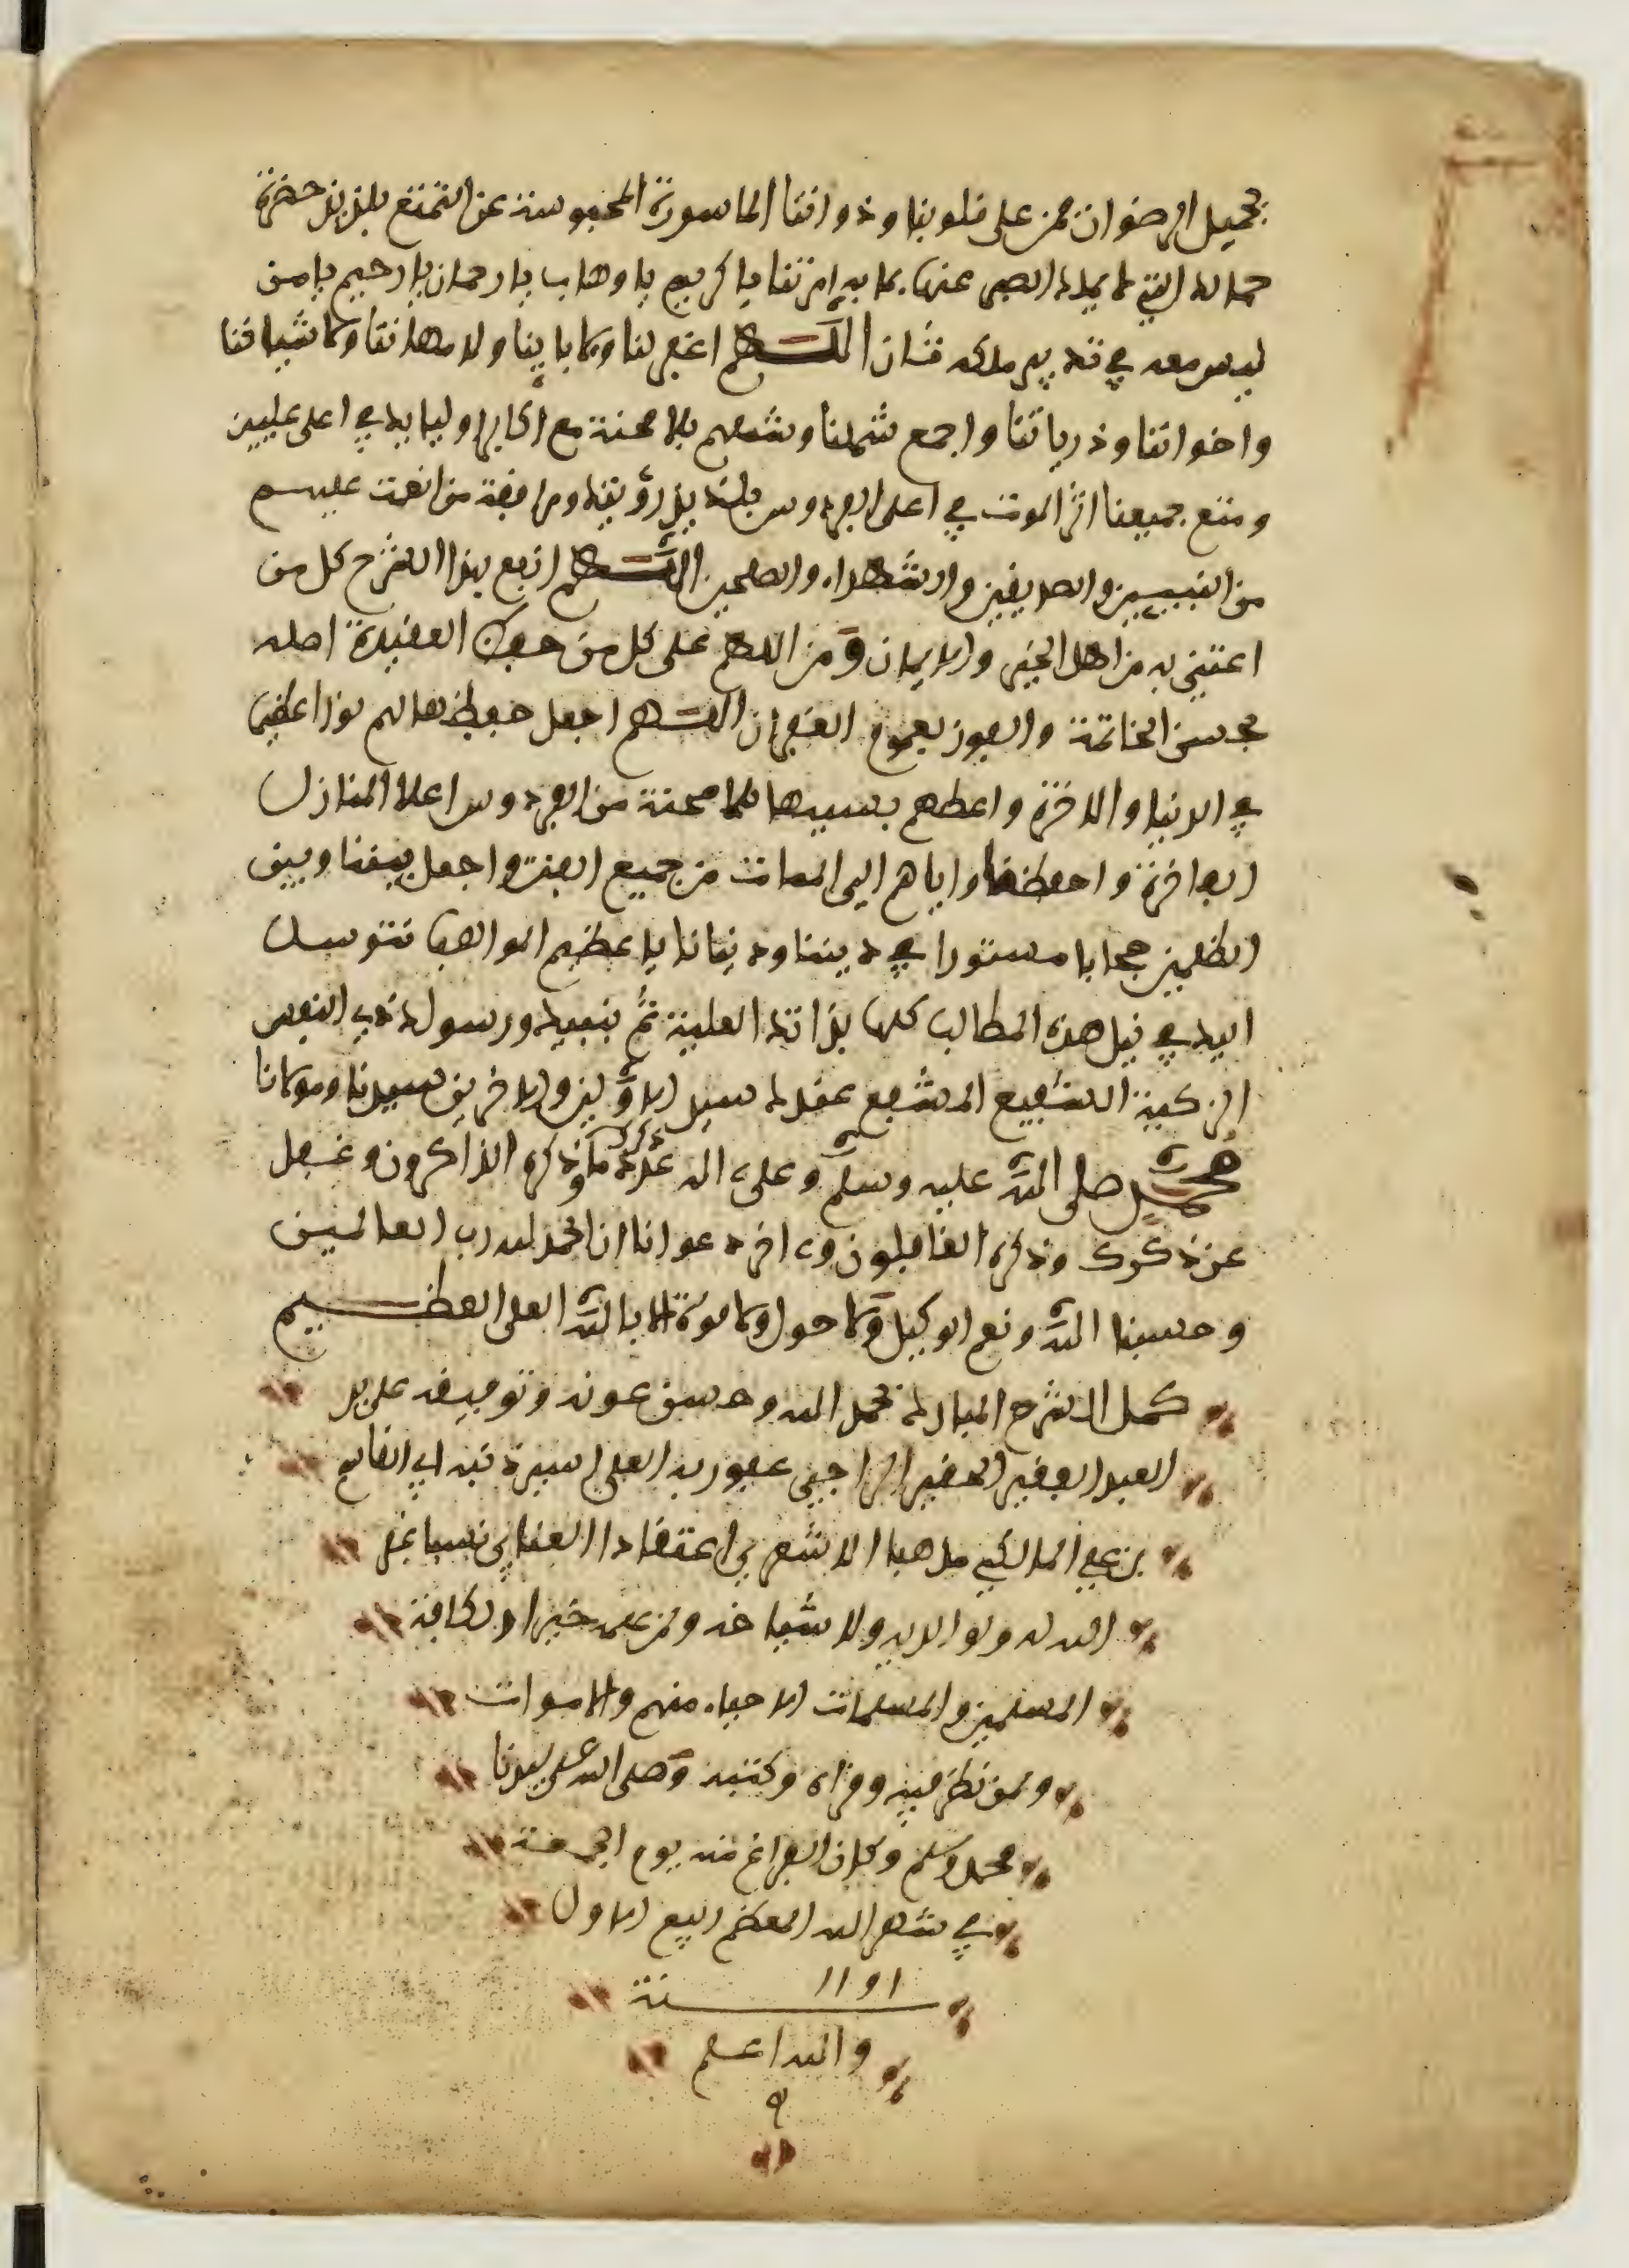 بجميل الرضوان ثمن على قلوبنا وذواتنا الماسورة المحبوسة عن التمتع بلذيذ حضرة
جمالك التي لا يملك الصبر عنها بما به امرتنا يا كريم يا وهاب يا رحمان يا رحيم يا من
ليس معه في تدبير ملكه ثان اللهم اغفر لنا ولابائنا ولامهاتنا ولاشياخنا
واخواننا وذرياتنا واجمع شملنا وشملهم بلا محنة مع اكابر اوليايك في اعلى عليين
ومتع جميعنا اثر الموت في اعلى الفردوس بلذيذ رؤيتك ومرافقة من انعمت عليهم
من النبيين والصديقين والشهداء والصلحين اللهم انفع بهذا الشرح كل من
اعتنى به من اهل الخير والايمان ومن اللهم على كل من حفظ العقيدة اصله
بحسن الخاتمة والفوز بعموم الغفران اللهم اجعل حفظها لهم نورا عظيما
في الدنيا والاخرة واعطهم بسببها بلا محنة من الفردوس اعلا المنازل
الفاخرة واحفظنا واياهم الى الممات من جميع الفتن واجعل بيننا وبين
الظلمين حجابا مستورا في ديننا ودنيانا يا عظيم المواهب نتوسل
اليك في نيل هذه المطالب كلها بذاتك العلية ثم بنبيك ورسولك ذي النفس
الزكية الشفيع المشفع عندك سيد الاولين والاخرين سيدنا ومولانا
محمد صلى الله عليه وسلم وعلى اله عدد ما ذكرك وذكره الذاكرون وغفل
عن ذكرك وذكره الغافلون وءاخر دعوانا ان الحمد لله رب العالمين
وحسبنا الله ونعم الوكيل ولا حول ولا قوة الا بالله العلي العظيم
كمل الشرح المبارك بحمد الله وحسن عونه وتوفيقه على يد
العبد الفقير الحقير الراجي عفو ربه العلي اسير ذنبه ابي القاسم
بن علي المالكي مذهبا الاشعري اعتقادا نسبا غفر
الله له ولوالديه ولاشياخه ولمن علمه خيرا ولكافة
المسلمين والمسلمات الاحياء منهم والاموات
ولمن نظر فيه وقراه وكتبه وصلى الله على سيدنا
محمد وسلم وكان الفراغ منه يوم الجمعة
في شهر الله المعظم ربيع الاول
سنة
والله اعلم